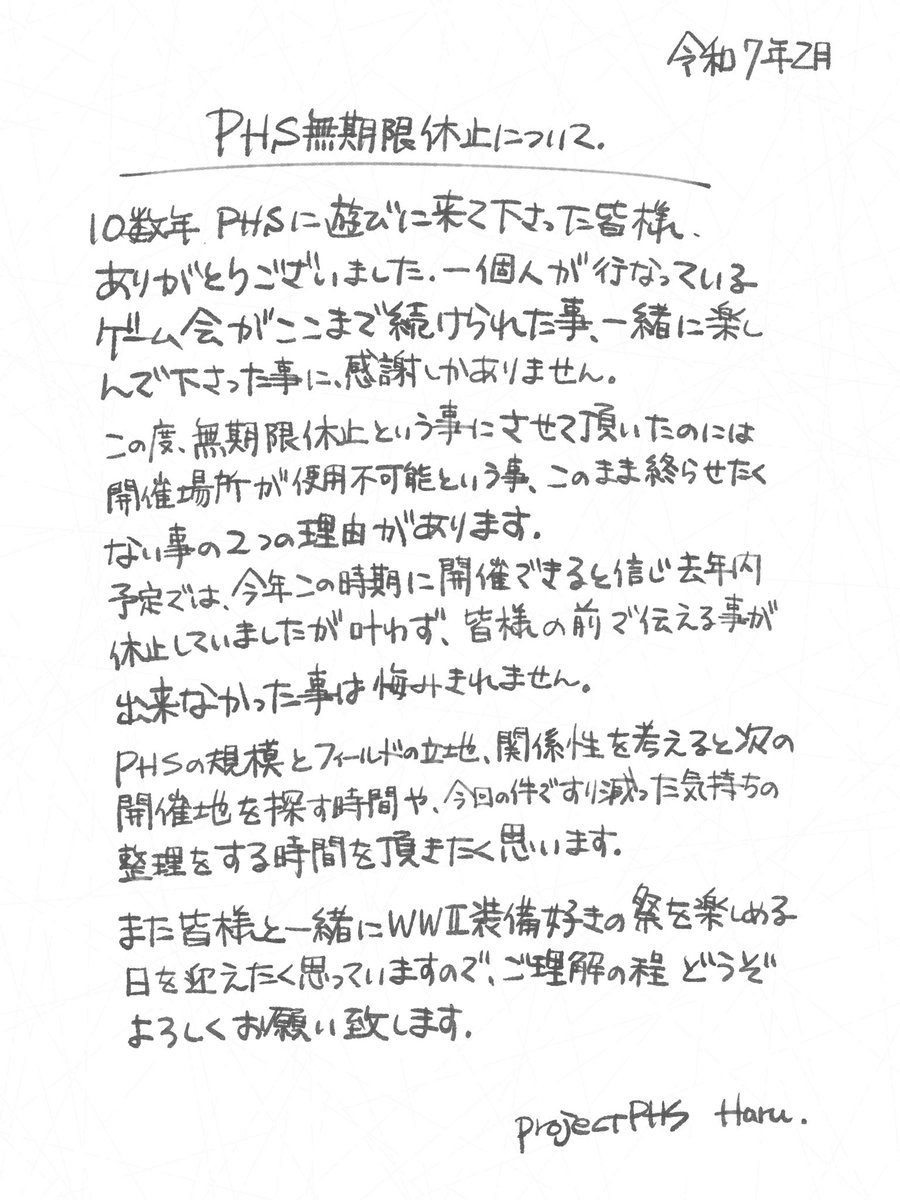 令和7年2月
PHS無期限休止について.
10数年 PHSに遊びに来て下さった皆様、
ありがとうございました.一個人が行なっている
ゲーム会がここまで続けられた事、一緒に楽し
んで下さった事に、感謝しかありません。
この度、無期限休止という事にさせて頂いたのには
開催場所が使用不可能という事、このまま終らせたく
ない事の2つの理由があります.
予定では、今年この時期に開催できると信じ去年内
休止していましたが叶わず、皆様の前で伝える事が
出来なかった事は悔みきれません。
PHSの規模とフィールドの立地、関係性を考えると次の
開催地を探す時間や、今日の件ですり減った気持ちの
整理をする時間を頂きたく思います.
また皆様と一緒にWWⅡ装備好きの祭を楽しめる
日を迎えたく思っていますので、ご理解の程 どうぞ
よろしくお願い致します.
projectPHS Haru.